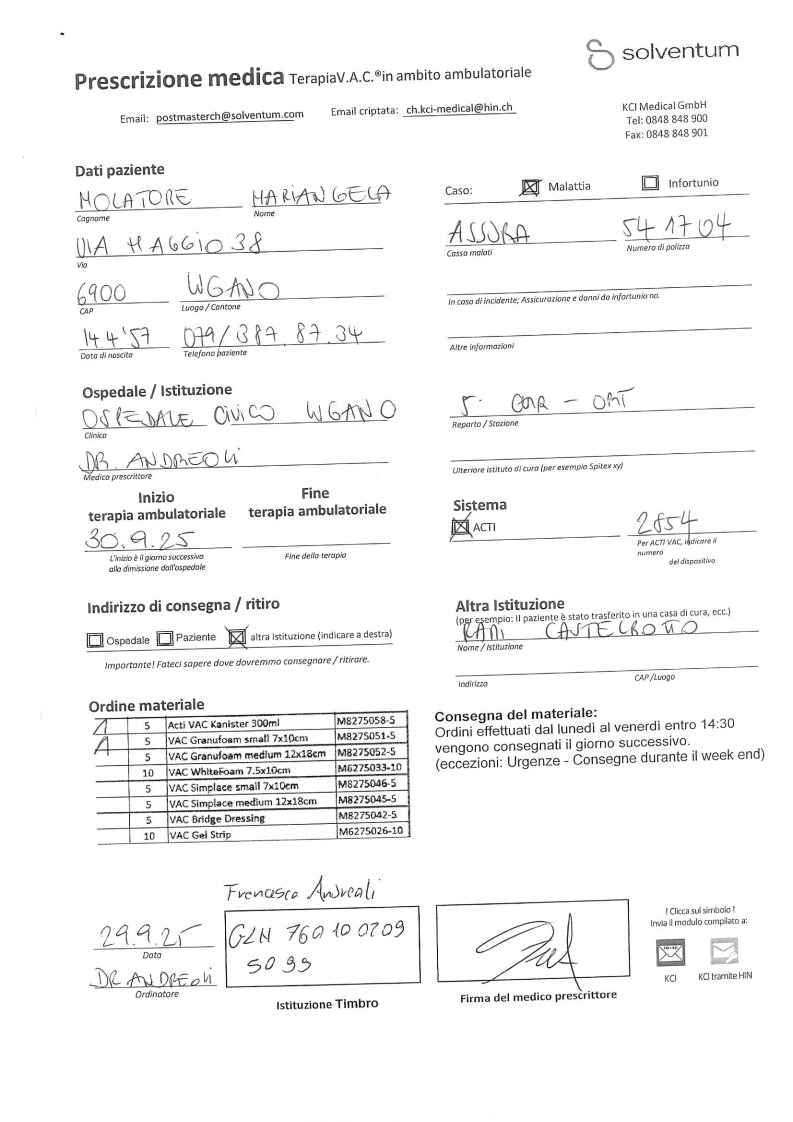 solventum
Prescrizione medica TerapiaV.A.C.®in ambito ambulatoriale
Email: postmasterch@solventum.com Email criptata: ch.kci-medical@hin.ch
KCI Medical GmbH
Tel: 0848 848 900
Fax: 0848 848 901
Dati paziente
MOLATORE MARIANGELA
Cognome Nome
VIA MAGGIO 38
Via
6900 LUGANO
CAP Luogo / Cantone
14 4 '57 079/387.87.34
Data di nascita Telefono paziente
Caso: Malattia Infortunio
ASSURA 54 17 04
Cassa malati Numero di polizza
In caso di incidente; Assicurazione e danni da infortunio no.
Altre informazioni
Ospedale / Istituzione
OSPEDALE CIVICO LUGANO
Clinica
DR. ANDREOLI
Medico prescrittore
5° - ORT
Reparto / Stazione
Ulteriore istituto di cura (per esempio Spitex xy)
Inizio Fine
terapia ambulatoriale terapia ambulatoriale
30.9.25
L'inizio è il giorno successivo Fine della terapia
alla dimissione dall'ospedale
Sistema
ACTI 2854
Per ACTI VAC, indicare il
numero
del dispositivo
Indirizzo di consegna / ritiro
Ospedale Paziente altra Istituzione (indicare a destra)
Importante! Fateci sapere dove dovremmo consegnare / ritirare.
Altra Istituzione
(per esempio: Il paziente è stato trasferito in una casa di cura, ecc.)
CASTELROTTO
Nome / Istituzione
Indirizzo CAP /Luogo
Ordine materiale
1 5 Acti VAC Kanister 300ml M8275058-5
1 5 VAC Granufoam small 7x10cm M8275051-5
5 VAC Granufoam medium 12x18cm M8275052-5
10 VAC WhiteFoam 7.5x10cm M6275033-10
5 VAC Simplace small 7x10cm M8275046-5
5 VAC Simplace medium 12x18cm M8275045-5
5 VAC Bridge Dressing M8275042-5
10 VAC Gel Strip M6275026-10
Consegna del materiale:
Ordini effettuati dal lunedì al venerdì entro 14:30
vengono consegnati il giorno successivo.
(eccezioni: Urgenze - Consegne durante il week end)
Francesco Andreoli
29.9.25
Data
DR ANDREOLI
Ordinatore
GLN 760 10 0209
5099
Istituzione Timbro
Firma del medico prescrittore
! Clicca sul simbolo !
Invia il modulo compilato a:
KCI KCI tramite HIN